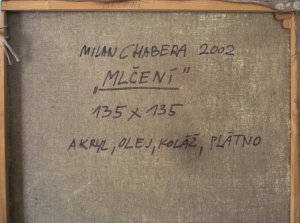 MILAN CHABERA 2002
„MLČENÍ"
135 x 135
AKRYL, OLEJ, KOLÁŽ, PLÁTNO